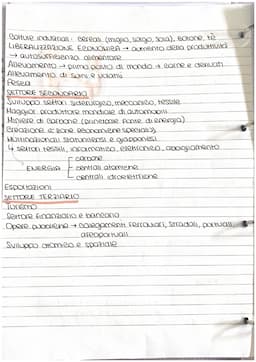 Colture industriali: cereali (miglio, sorgo, soia), cotone, tè
LIBERALIZZAZIONE ECONOMICA → aumento della produttività
→ autosufficienza alimentare
Allevamento → primo posto di mondo → carne e derivati
Allevamento di suini e volatili
Pesca
SETTORE SECONDARIO
Sviluppo settori siderurgico, meccanico, tessile
Maggior produttore mondiale di automobili
Miniere di carbone (principale fonte di energia)
Creazione di zone economiche speciali
Multinazionali statunitensi e giapponesi
4 settori tessili, informatico, elettronico, abbigliamento
carbone
ENERGIA centrali atomiche
centrali idroelettriche
Esportazioni
SETTORE TERZIARIO
Turismo
Settore finanziario e bancario
Opere pubbliche → collegamenti ferroviari, stradali, portuali,
aeroportuali
Sviluppo atomico e spaziale